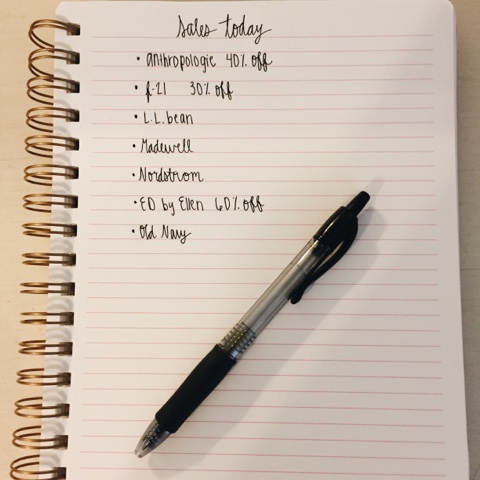 Sales today
• anthropologie 40% off
• f-21 30% off
• L.L.bean
• Madewell
• Nordstrom
• ED by Ellen 60% off
• Old Navy